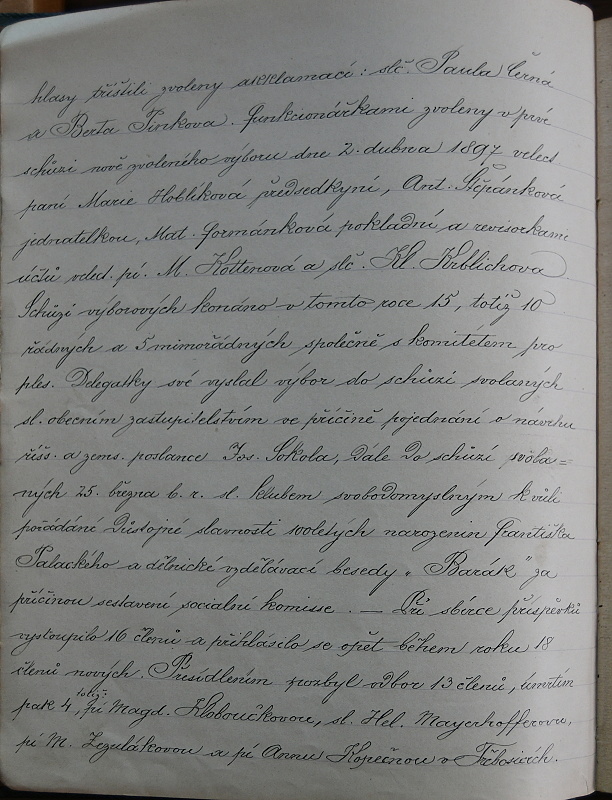 hlasy tříštili zvoleny akklamací: slč. Paula Černá
a Berta Pinkova. Funkcionářkami zvoleny v prvé
schůzi nově zvoleného výboru dne 2. dubna 1897 velect
paní Marie Hoblíková předsedkyní, Ant. Štěpánková
jednatelkou, Mat. Formánková pokladní a revisorkami
účtů veled. pí. M. Kottenová a slč. Kl.
Schůzí výborových konáno v tomto roce 15, totiž 10
řádných a 5 mimořádných společně s komitétem pro
ples. Delegatky své vyslal výbor do schůzí svolaných
sl. obecním zastupitelstvím ve příčině pojednání o návrhu
říšs. a zems. poslance Jos. Sokola, dále do schůzí svola=
ných 25. března b. r. sl. klubem svobodomyslným kvůli
pořádání důstojné slavnosti 100letých narozenin Františka
Palackého a dělnické vzdělávací besedy „Barák" za
příčinou sestavení socialní komisse. — Při sbírce příspěvků
vystoupilo 16 členů a přihlásilo se opět během roku 18
členů nových. Přesídlením pozbyl odbor 13 členů, úmrtím
pak 4, totiž pí Magd. Kloboučkovou, sl. Hel. Mayerhofferovu,
pí M. Zezulákovou a pí Annu Kopečnou v Třebosicích.